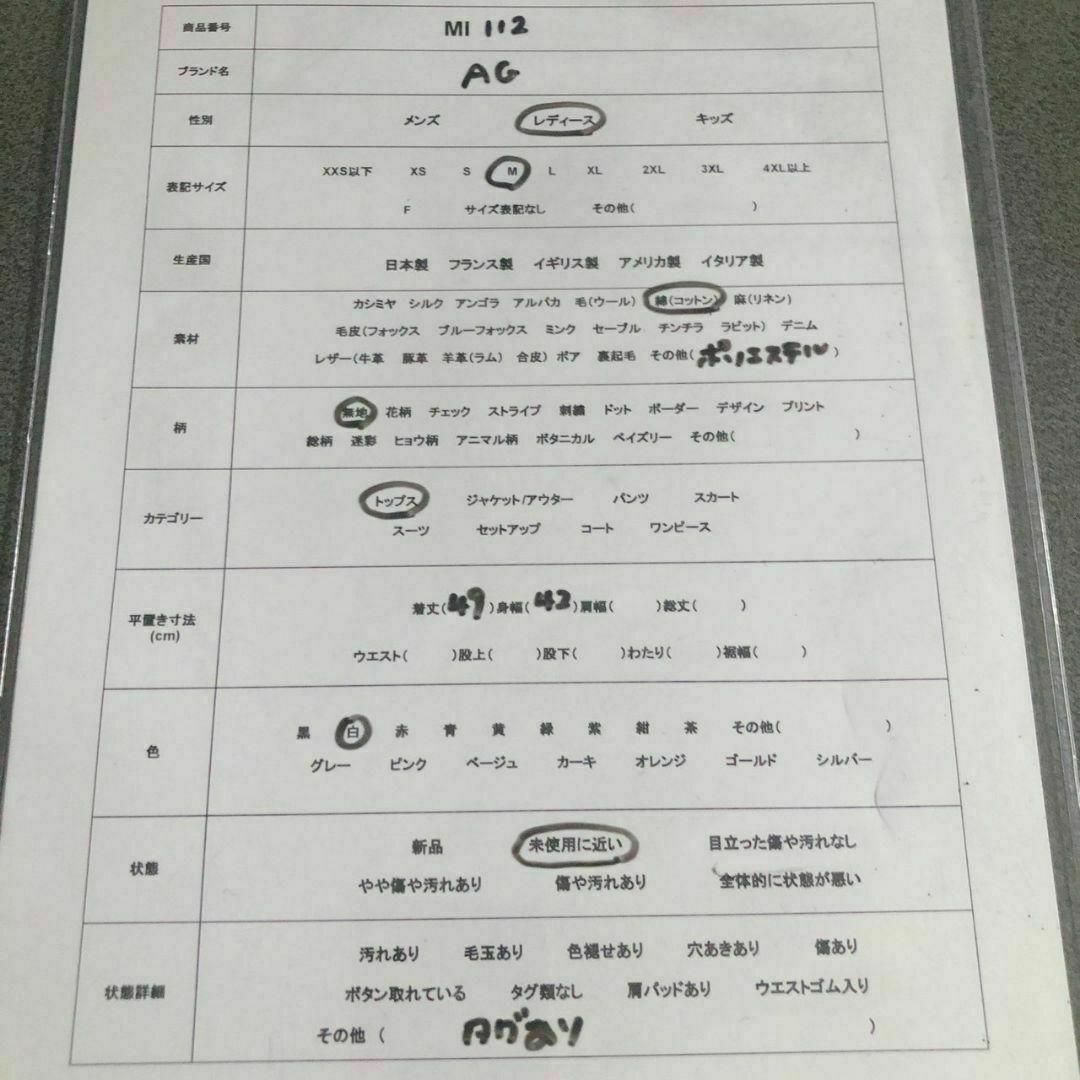 商品番号 MI 112
ブランド名 AG
性別 メンズ レディース キッズ
表記サイズ XXS以下 XS S M L XL 2XL 3XL 4XL以上
F サイズ表記なし その他( )
生産国 日本製 フランス製 イギリス製 アメリカ製 イタリア製
素材 カシミヤ シルク アンゴラ アルパカ 毛(ウール) 綿(コットン) 麻(リネン)
毛皮(フォックス ブルーフォックス ミンク セーブル チンチラ ラビット) デニム
レザー(牛革 豚革 羊革(ラム) 合皮) ボア 裏起毛 その他(ポリエステル)
柄 無地 花柄 チェック ストライプ 刺繍 ドット ボーダー デザイン プリント
総柄 迷彩 ヒョウ柄 アニマル柄 ボタニカル ペイズリー その他( )
カテゴリー トップス ジャケット/アウター パンツ スカート
スーツ セットアップ コート ワンピース
平置き寸法 (cm) 着丈(49)身幅(42)肩幅( )総丈( )
ウエスト( )股上( )股下( )わたり( )裾幅( )
色 黒 白 赤 青 黄 緑 紫 紺 茶 その他( )
グレー ピンク ベージュ カーキ オレンジ ゴールド シルバー
状態 新品 未使用に近い 目立った傷や汚れなし
やや傷や汚れあり 傷や汚れあり 全体的に状態が悪い
状態詳細 汚れあり 毛玉あり 色褪せあり 穴あきあり 傷あり
ボタン取れている タグ類なし 肩パッドあり ウエストゴム入り
その他 ( タグあり )